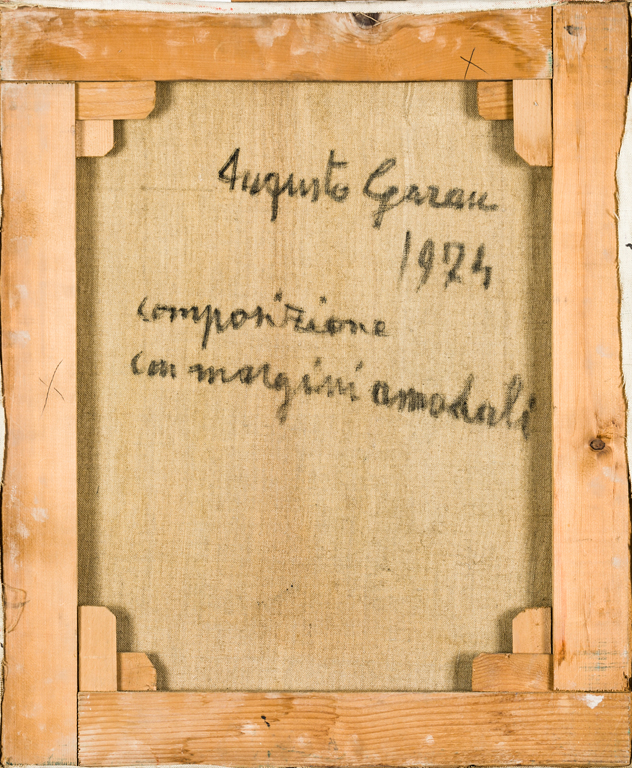 Augusto Garau
1974
composizione
con margini amodali